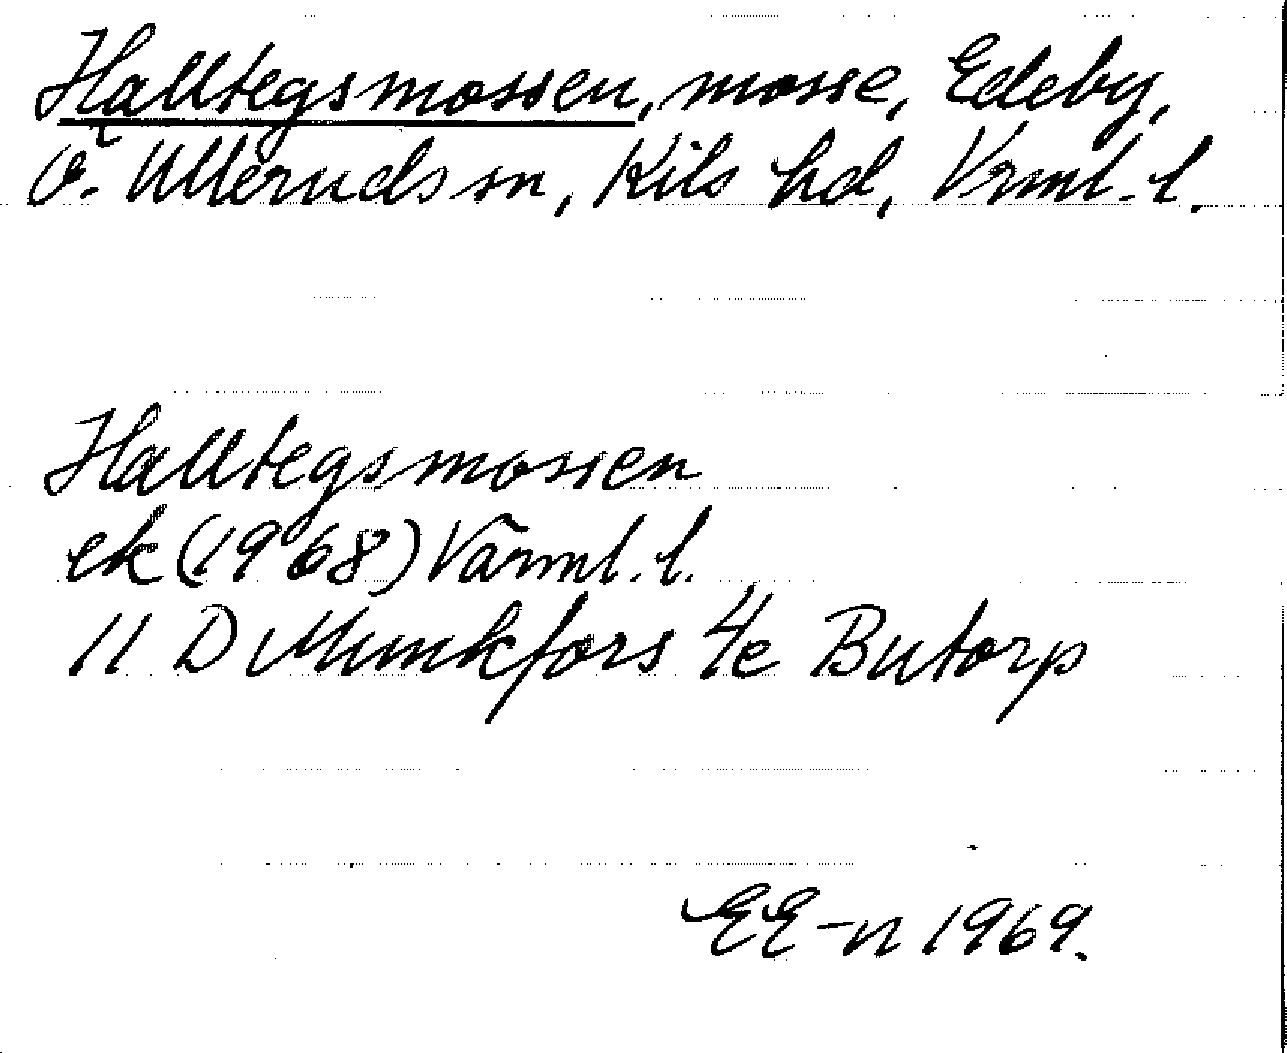 Halltegsmossen, mosse, Edeby,
Ö. Ulleruds sn, Kils hd, Vrml. l.
Halltegsmossen
ek (1968) Värml. l.
11 D Munkfors 4e Butorp
EE-n 1969.